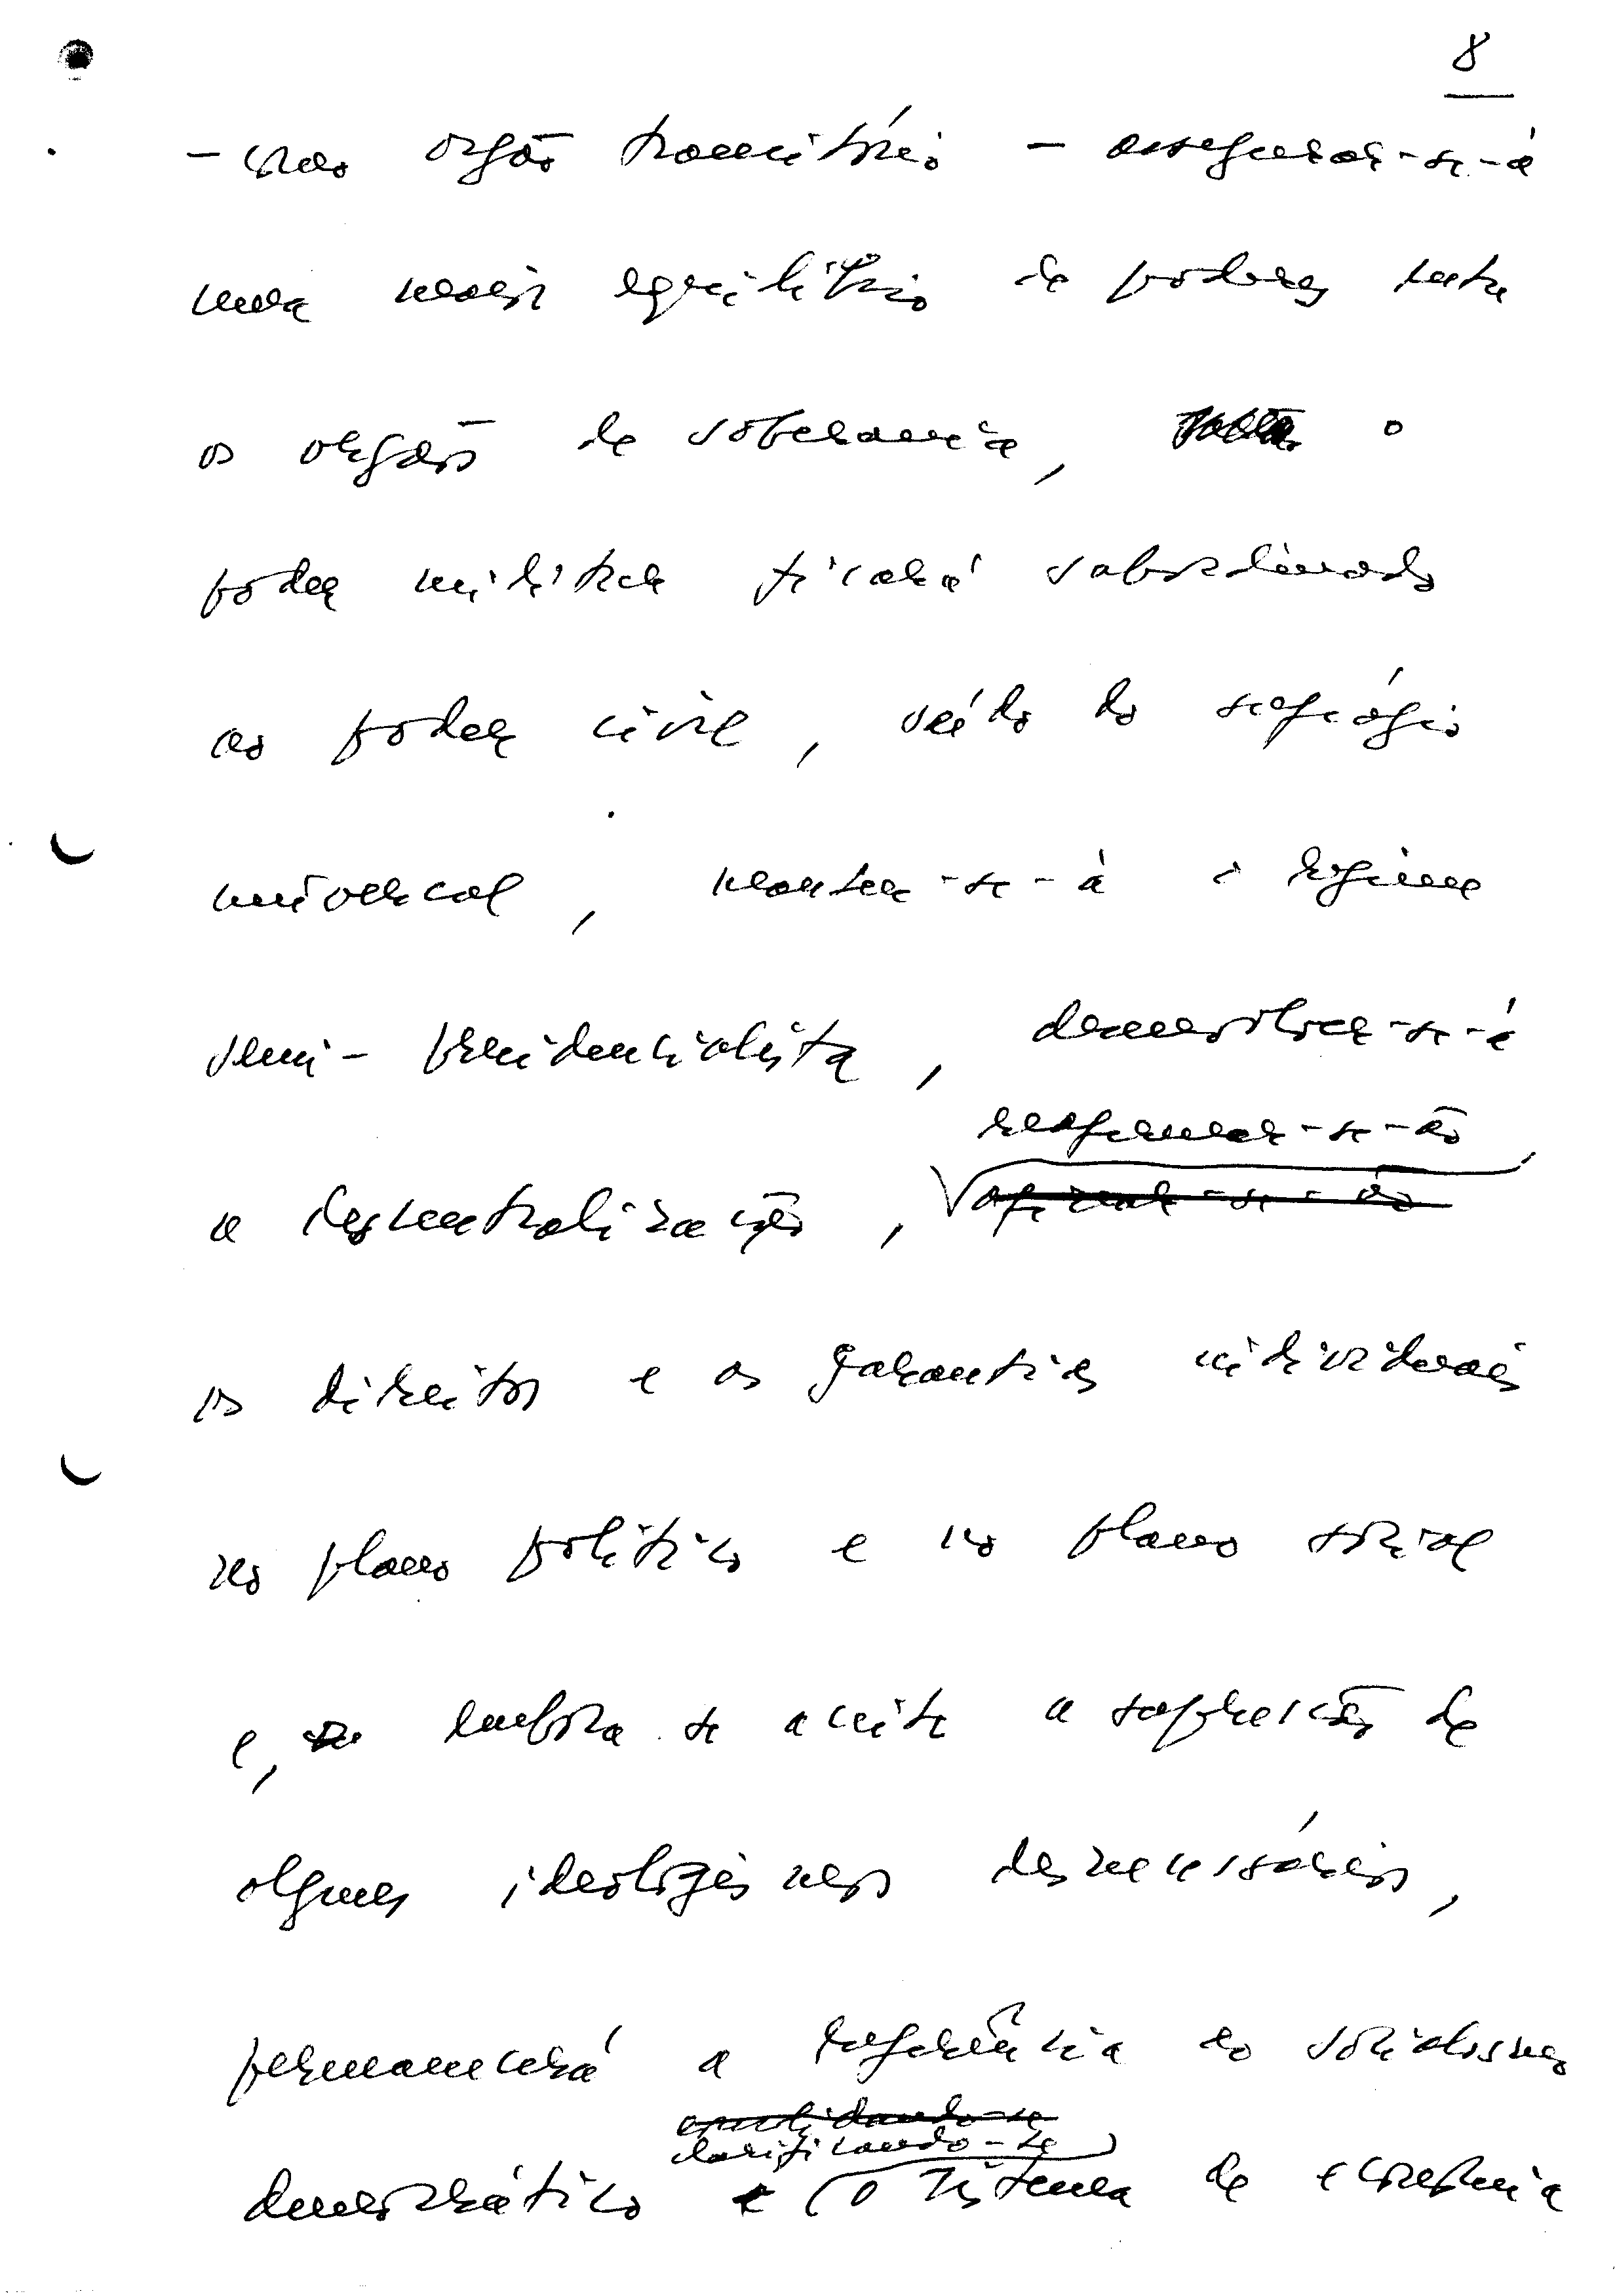 8
- como orgão transitório - assegurar-se-á
um maior equilíbrio de poderes entre
os orgãos de soberania, o
poder militar ficará subordinado
ao poder civil, saído do sufrágio
universal, manter-se-á o regime
semi-presidencialista, desenvolver-se-á
reafirmar-se-ão
a descentralização, afirmar-se-ão
os direitos e as garantias individuais
no plano político e no plano social
e, embora se aceite a supressão de
algumas ideologizações desnecessárias,
permanecerá a referência ao socialismo
clarificando-se
democrático e o sistema de economia